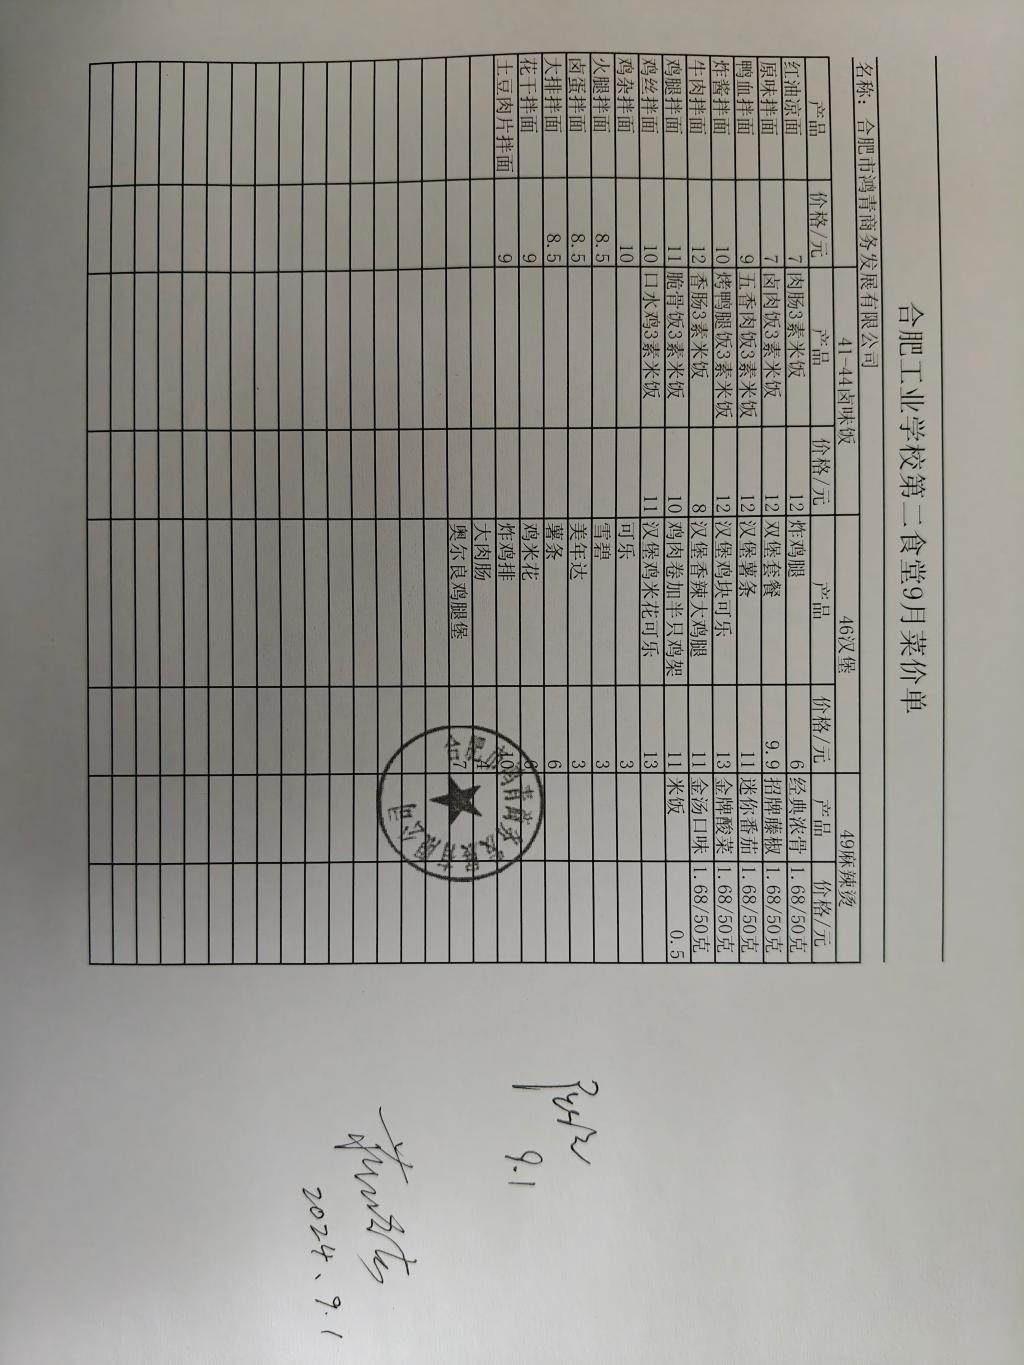 合肥工业学校第二食堂9月菜价单
名称：合肥市鸿青商务发展有限公司
41-44卤味饭 46汉堡 49麻辣烫
产品 价格/元 产品 价格/元 产品 价格/元 产品 价格/元
红油凉面 7 肉肠3素米饭 12 炸鸡腿 6 经典浓骨 1.68/50克
原味拌面 7 卤肉饭3素米饭 12 双堡套餐 9.9 招牌藤椒 1.68/50克
鸭血拌面 9 五香肉饭3素米饭 12 汉堡薯条 11 迷你番茄 1.68/50克
炸酱拌面 10 烤鸭腿饭3素米饭 12 汉堡鸡块可乐 13 金牌酸菜 1.68/50克
牛肉拌面 12 香肠3素米饭 8 汉堡香辣大鸡腿 11 金汤口味 1.68/50克
鸡腿拌面 11 脆骨饭3素米饭 10 鸡肉卷加半只鸡架 11 米饭 0.5
鸡丝拌面 10 口水鸡3素米饭 11 汉堡鸡米花可乐 13
鸡杂拌面 10 可乐 3
火腿拌面 8.5 雪碧 3
卤蛋拌面 8.5 美年达 3
大排拌面 8.5 薯条 6
花干拌面 9 鸡米花
土豆肉片拌面 9 炸鸡排 10
大肉肠 4
奥尔良鸡腿堡 7
合肥市鸿青商务发展有限公司
9.1
2024、9.1